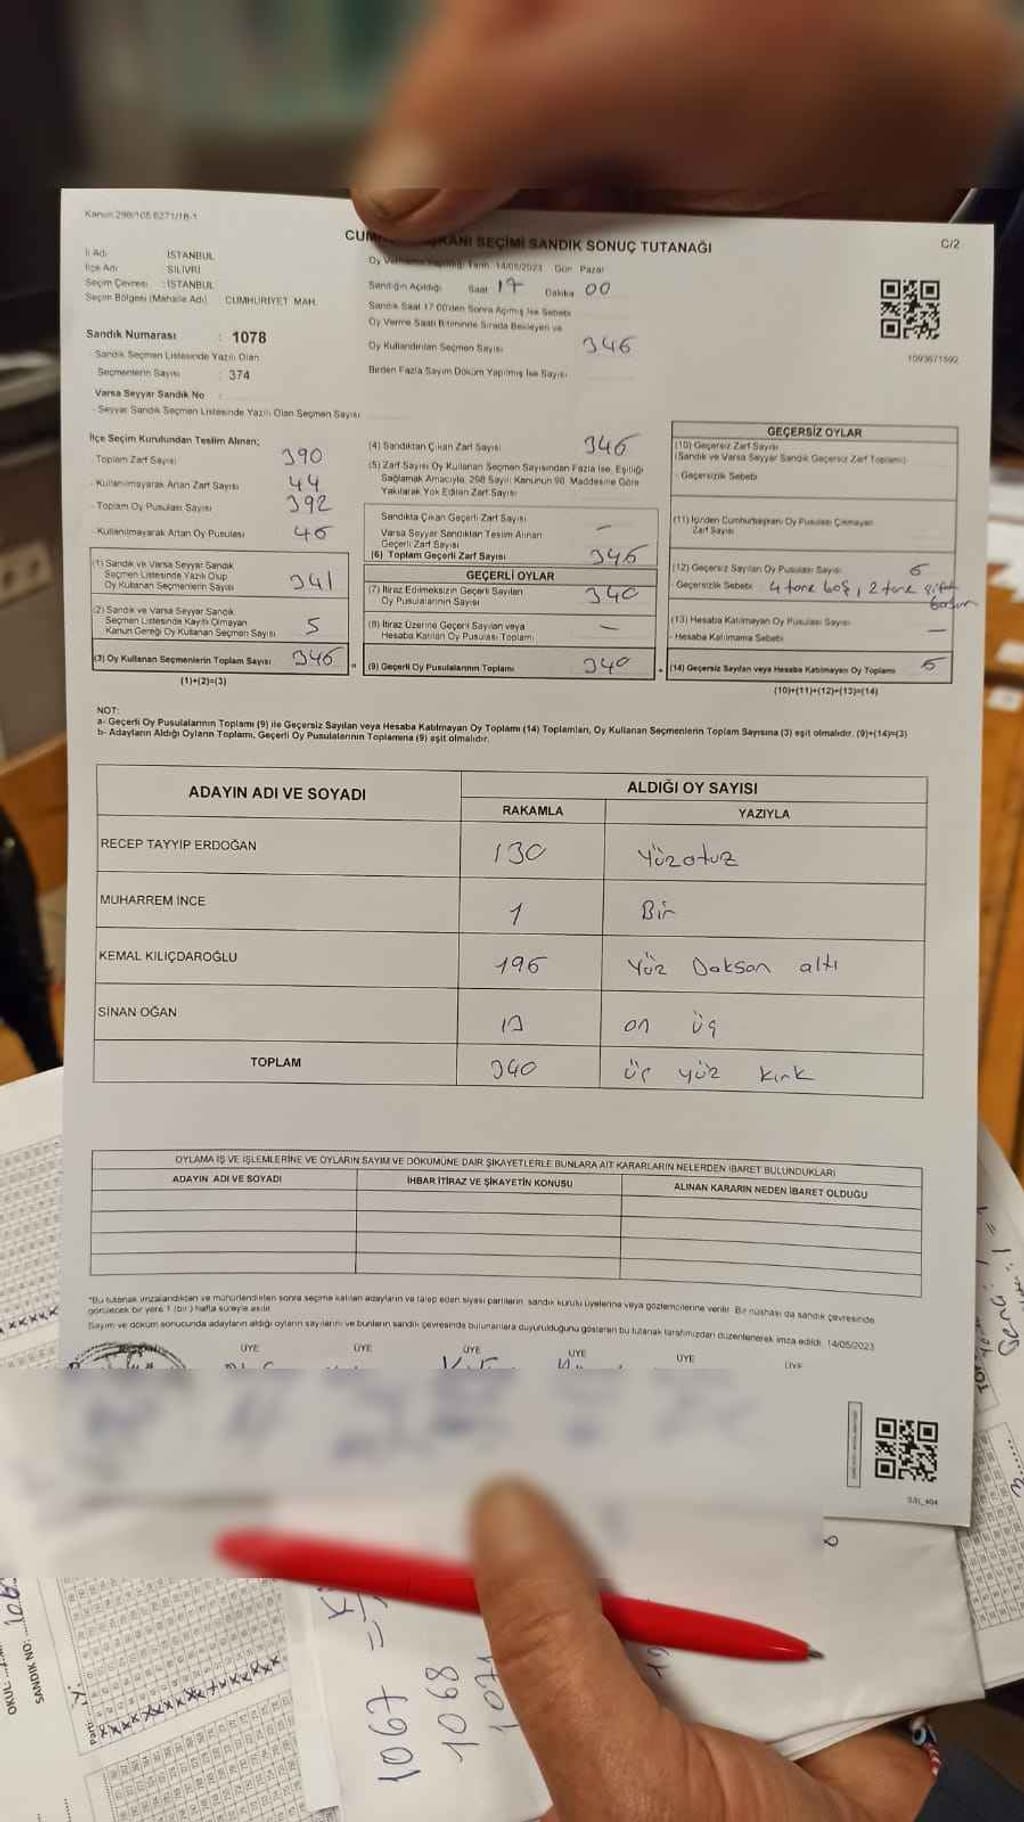 Kanun 298/105 6271/1B-1
CUM KANI SEÇİMİ SANDIK SONUÇ TUTANAĞI
C/2
İl Adı İSTANBUL
İlçe Adı SİLİVRİ
Seçim Çevresi : İSTANBUL
Seçim Bölgesi (Mahalle Adı) CUMHURİYET MAH.
Tarih: 14/05/2023 Gün Pazar
Sandığın Açıldığı Saat 17 Dakika 00
Sandık Saat 17:00'den Sonra Açılmış İse Sebebi
Oy Verme Saati Bitiminde Sırada Bekleyen ve
Oy Kullandırılan Seçmen Sayısı 346
Birden Fazla Sayım Döküm Yapılmış İse Sayısı
1093671592
Sandık Numarası : 1078
Sandık Seçmen Listesinde Yazılı Olan
Seçmenlerin Sayısı : 374
Varsa Seyyar Sandık No
- Seyyar Sandık Seçmen Listesinde Yazılı Olan Seçmen Sayısı
İlçe Seçim Kurulundan Teslim Alınan;
- Toplam Zarf Sayısı 390
- Kullanılmayarak Artan Zarf Sayısı 44
- Toplam Oy Pusulası Sayısı 392
- Kullanılmayarak Artan Oy Pusulası 46
(1) Sandık ve Varsa Seyyar Sandık
Seçmen Listesinde Yazılı Olup
Oy Kullanan Seçmenlerin Sayısı 341
(2) Sandık ve Varsa Seyyar Sandık
Seçmen Listesinde Kayıtlı Olmayan
Kanun Gereği Oy Kullanan Seçmen Sayısı 5
(3) Oy Kullanan Seçmenlerin Toplam Sayısı 346
(1)+(2)=(3)
(4) Sandıktan Çıkan Zarf Sayısı 346
(5) Zarf Sayısı Oy Kullanan Seçmen Sayısından Fazla İse, Eşitliği
Sağlamak Amacıyla, 298 Sayılı Kanunun 98. Maddesine Göre
Yakılarak Yok Edilen Zarf Sayısı
Sandıkta Çıkan Geçerli Zarf Sayısı —
Varsa Seyyar Sandıktan Teslim Alınan
Geçerli Zarf Sayısı
(6) Toplam Geçerli Zarf Sayısı 346
GEÇERLİ OYLAR
(7) İtiraz Edilmeksizin Geçerli Sayılan
Oy Pusulalarının Sayısı 340
(8) İtiraz Üzerine Geçerli Sayılan veya
Hesaba Katılan Oy Pusulası Toplamı —
(9) Geçerli Oy Pusulalarının Toplamı 340
GEÇERSİZ OYLAR
(10) Geçersiz Zarf Sayısı
(Sandık ve Varsa Seyyar Sandık Geçersiz Zarf Toplamı)
- Geçersizlik Sebebi
(11) İçinden Cumhurbaşkanı Oy Pusulası Çıkmayan
Zarf Sayısı
(12) Geçersiz Sayılan Oy Pusulası Sayısı 6
- Geçersizlik Sebebi 4 tane boş, 2 tane
(13) Hesaba Katılmayan Oy Pusulası Sayısı —
- Hesaba Katılmama Sebebi
(14) Geçersiz Sayılan veya Hesaba Katılmayan Oy Toplamı 6
(10)+(11)+(12)+(13)=(14)
NOT:
a- Geçerli Oy Pusulalarının Toplamı (9) ile Geçersiz Sayılan veya Hesaba Katılmayan Oy Toplamı (14) Toplamları, Oy Kullanan Seçmenlerin Toplam Sayısına (3) eşit olmalıdır. (9)+(14)=(3)
b- Adayların Aldığı Oyların Toplamı, Geçerli Oy Pusulalarının Toplamına (9) eşit olmalıdır.
ADAYIN ADI VE SOYADI ALDIĞI OY SAYISI
RAKAMLA YAZIYLA
RECEP TAYYİP ERDOĞAN 130 Yüzotuz
MUHARREM İNCE 1 Bir
KEMAL KILIÇDAROĞLU 196 Yüz Doksan altı
SİNAN OĞAN 13 on üç
TOPLAM 340 üç yüz kırk
OYLAMA İŞ VE İŞLEMLERİNE VE OYLARIN SAYIM VE DÖKÜMÜNE DAİR ŞİKAYETLERLE BUNLARA AİT KARARLARIN NELERDEN İBARET BULUNDUKLARI
ADAYIN ADI VE SOYADI İHBAR İTİRAZ VE ŞİKAYETİN KONUSU ALINAN KARARIN NEDEN İBARET OLDUĞU
*Bu tutanak imzalandıktan ve mühürlendikten sonra seçime katılan adayların ve talep eden siyasi partilerin sandık kurulu üyelerine veya gözlemcilerine verilir. Bir nüshası da sandık çevresinde
görülecek bir yere 1 (bir) hafta süreyle asılır.
Sayım ve döküm sonucunda adayların aldığı oyların sayılarını ve bunların sandık çevresinde bulunanlara duyurulduğunu gösteren bu tutanak tarafımızdan düzenlenerek imza edildi. 14/05/2023
ÜYE ÜYE ÜYE ÜYE ÜYE ÜYE
OKUL
SANDIK NO:
1067 =
1068
1071